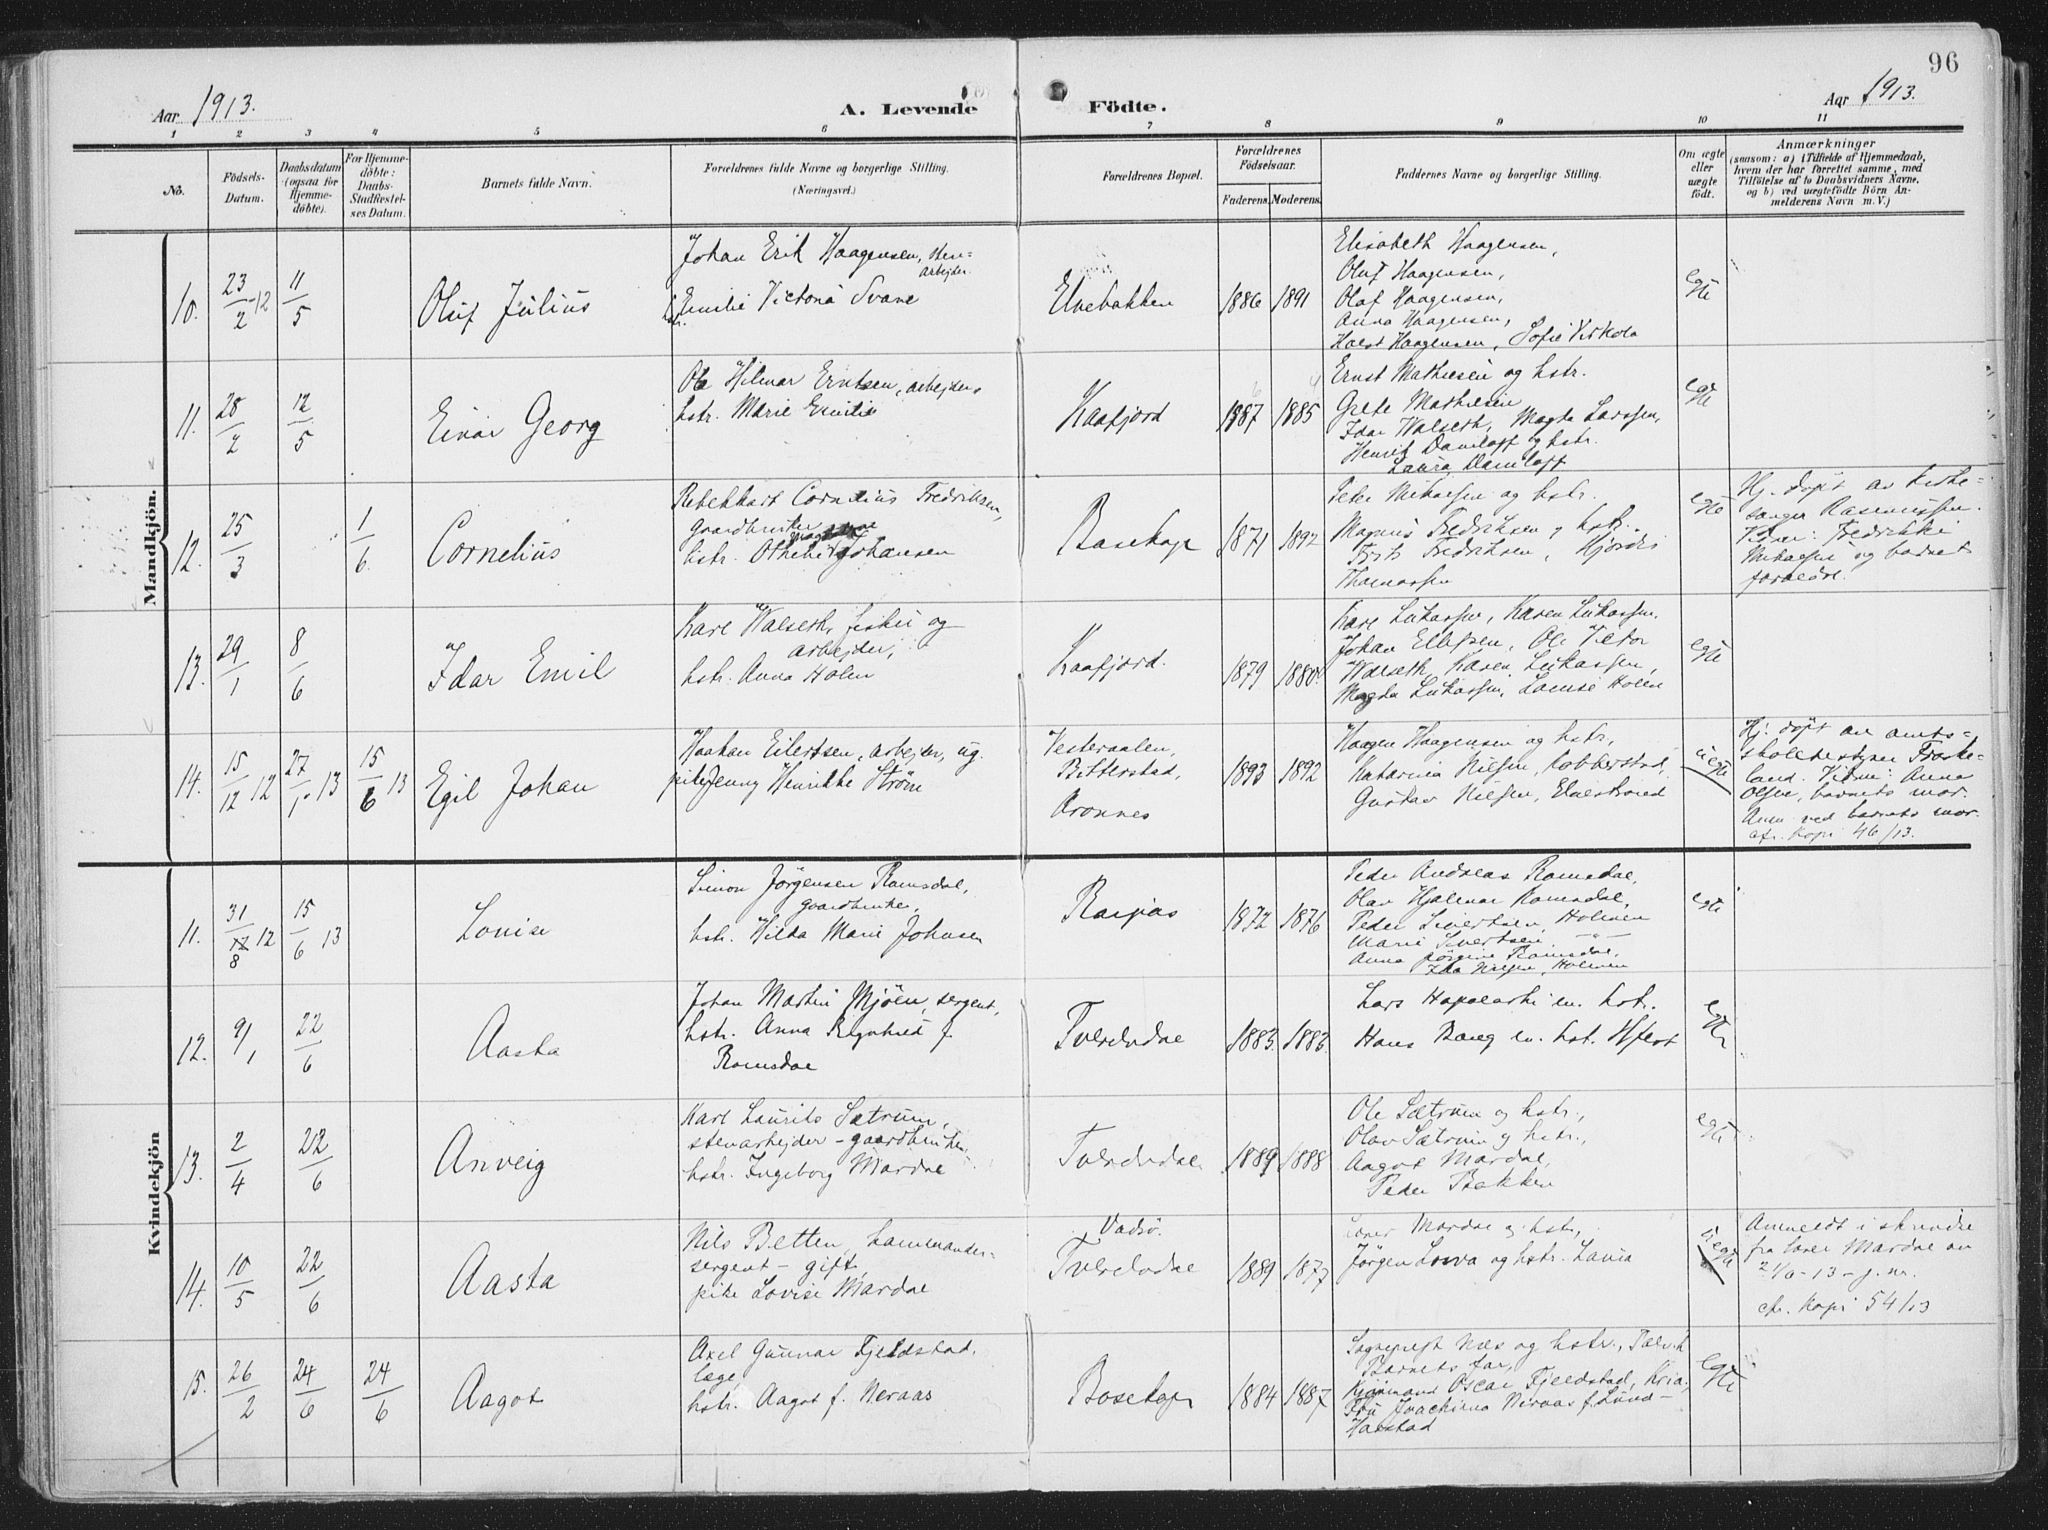 96
Aar 1913.
A. Levende Födte.
Aar 1913.
1 2 3 4 5 6 7 8 9 10 11
No.
Födsels-
Datum.
Daabsdatum
(ogsaa for
Hjemme-
döbte).
For Hjemme-
döbte:
Daabs-
Stadfæstel-
ses Datum.
Barnets fulde Navn.
Forældrenes fulde Navne og borgerlige Stilling.
(Næringsvei.)
Forældrenes Bopæl.
Forældrenes
Födselsaar.
Faderens.
Moderens.
Faddernes Navne og borgerlige Stilling.
Om ægte
eller
uægte
födt.
Anmærkninger
(saasom: a) i Tilfælde af Hjemmedaab,
hvem der har forrettet samme, med
Tilföielse af to Daabsvidners Navne,
og b) ved uægtefödte Börn An-
melderens Navn m. V.)
Mandkjön.
10.
23/2-12
11/5
Oluf Julius
Johan Erik Haagensen,
arbejder.
Emilie Victoria Svane
Elvebakken
1886
1891
Elisabeth Haagensen,
Oluf Haagensen,
Olaf Haagensen,
Anna Haagensen,
Haagensen, Sofie Virkola
egte
11.
28/2
12/5
Einar Georg
Ole Hilmar Erntsen, arbejder,
hstr. Marie Emilie
Kaafjord
1887
1885
Ernst Mathiesen og hstr.
Grete Mathiesen
Idar Walseth, Magda Larssen,
Henrik Damloft og hstr.
Laura Damloft
egte
12.
25/3
1/6
Cornelius
Cornelius Fredriksen,
Gaardbruker
hstr. Johansen
Bosekop
1871
1892
Peter Mikaelsen og hstr.
Magnus Fredriksen og hstr.
Fredriksen, Hjördis
Thomassen
egte
Hj. döpt av kirke-
sanger Rasmussen.
Vidner: Fredrikke
Mikaelsen og barnets
forældre.
13.
29/1
8/6
Idar Emil
Karl Walseth, fisker og
arbejder,
hstr. Anna Holen
Kaafjord.
1879
1880
Karl Lukassen, Karen Lukassen,
Johan Ellefsen, Ole Peter
Walseth, Karen Lukassen,
Magda Lukassen, Lovise Holen
egte
14.
15/12 12
27/1 13
15/6 13
Egil Johan
Haakan Eilertsen, arbejder, ug.
pike Jenny Henrikke Ström
Vesteraalen,
Bitterstad,
Aronnes
1893
1892
Haagen Haagensen og hstr.,
Katarina Nilsen, Kobberstad,
Gustav Nilsen, Elvestrand
uegte
Hj. döpt av amts-
skolebestyrer Froske-
land. Vidner: Anna
Olsen, barnets mor.
Anm. ved barnets mor.
cfr. Kopi 46/13.
Kvindekjön
11.
31/8 12
15/6 13
Lovise
Simon Jörgensen Romsdal,
gaardbruker,
hstr. Hilda Marie Johnsen
Raipas
1872
1876
Peder Andreas Romsdal,
Olav Hjalmar Romsdal,
Peder Sivertsen, Holmen
Marie Sivertsen. - " -
Anna Jörgine Romsdal,
Ida Nilsen, Holmen
egte
12.
9/1
22/6
Aasta
Johan Martin Mjöen, sergent,
hstr. Anna Ragnhild f.
Romsdal
Tverelvdal
1883.
1883.
Lars m. hst.
Hans Bang m. hst.
egte
13.
2/4
22/6
Anveig
Karl Laurits Sætrum,
stenarbejder - gaardbruker,
hstr. Ingeborg Mardal
Tverelvdal
1889
1888
Ole Sætrum og hstr.,
Olav Sætrum og hstr.,
Aagot Mardal,
Peder Bakken
egte
14.
10/5
22/6
Aasta
Nils Betten,
sergent - gift,
pike Lovise Mardal
Vadsö.
Tverelvdal
1889
1877
Mardal og hstr.,
Jörgen og hstr. Lavia
uegte
Anmeldt i skrivelse
fra Mardal av
- 13 - j. nr.
cfr. Kopi 54/13
15.
26/2
24/6
24/6
Aagot
Axel Gunnar Fjeldstad,
læge,
hstr. Aagot f. Neraas
Bosekop
1884
1887
Sogneprest Næs og hstr., Talvik
Barnets far,
Oscar Fjeldstad, Kria.,
Fru Joachima Neraas f. Lund -
Harstad
egte